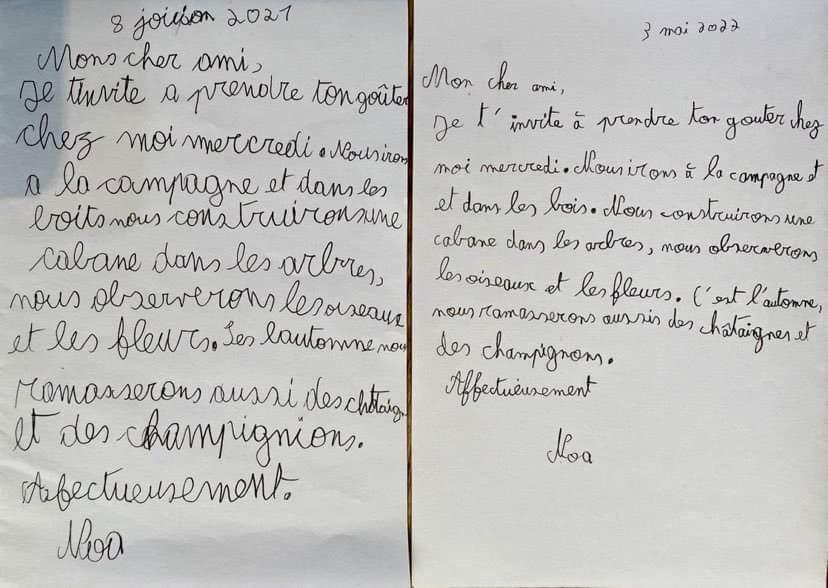 8 2021
Mons cher ami,
Je tinvite a prendre ton goûter
chez moi mercredi. Nous irons
a la campagne et dans les
boits nous construironsune
cabane dans les arbres,
nous observerons les oiseaux
et les fleurs. Ses lautomne nous
ramasserons aussi des châtaign
et des champignions.
Affectueusement.
Noa
3 mai 2022
Mon cher ami,
Je t'invite à prendre ton gouter chez
moi mercredi. Nous irons à la campagne et
et dans les bois. Nous construirons une
cabane dans les arbres, nous observerons
les oiseaux et les fleurs. C'est l'automne,
nous ramasserons aussis des châtaignes et
des champignons.
Affectueusement
Noa